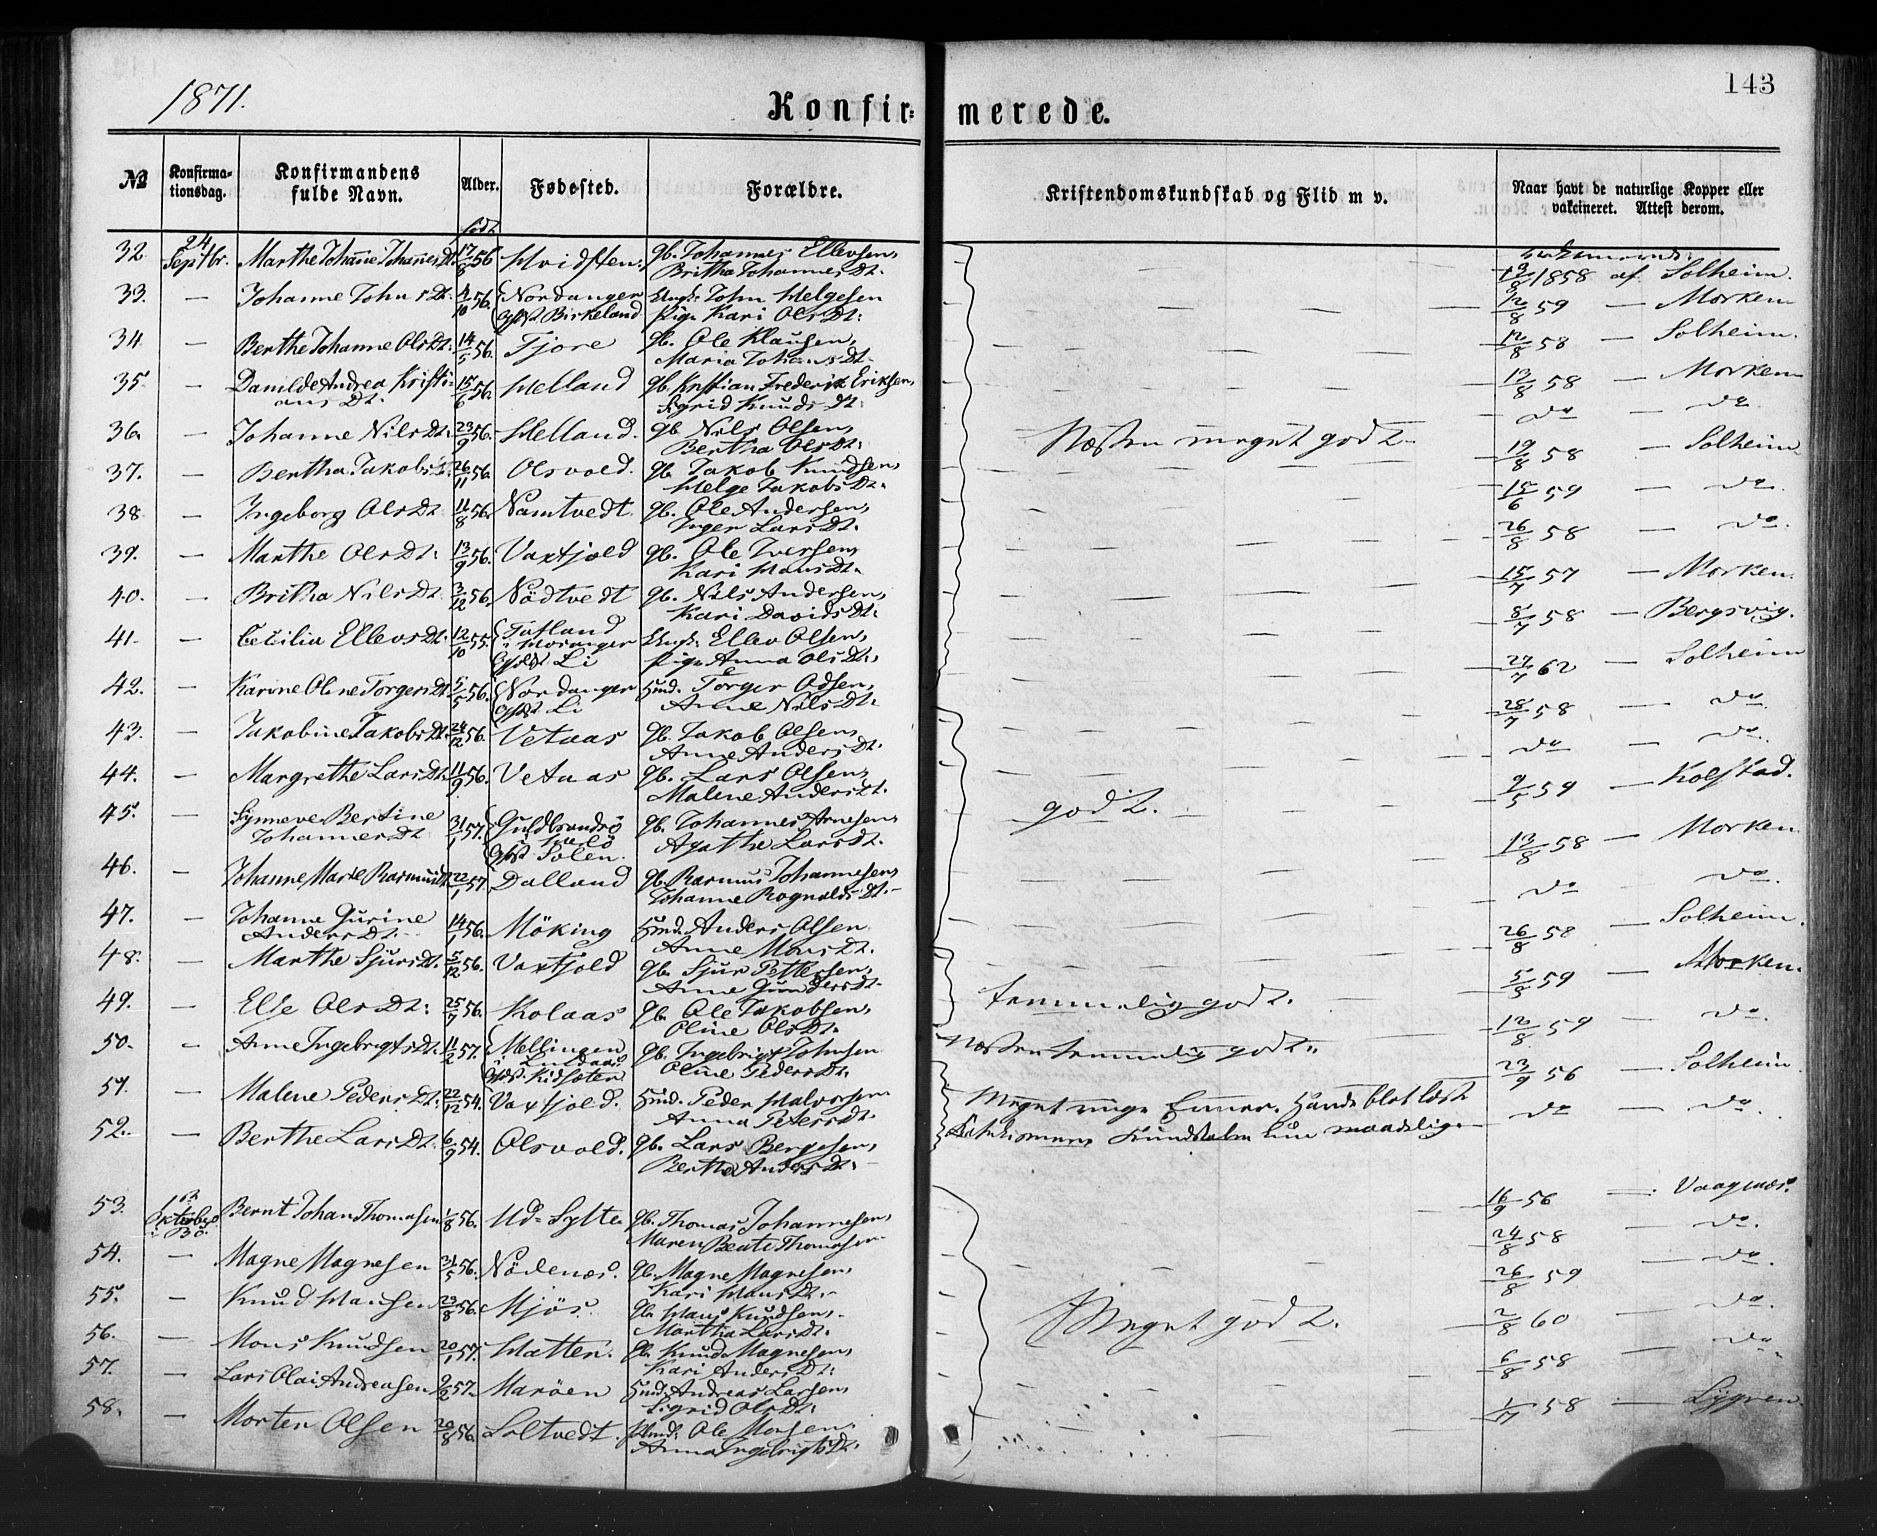 1871.
143
Konfir=merede.
№ Konfirmationsdag. Konfirmandens fulde Navn. Alder. Fødested. Forældre. Kristendomskundskab og Flid m v. Naar havt de naturlige Kopper eller vakcineret. Attest derom.
født
32 24 Septbr. Marthe Johanne JohannesDt. 17/8 56 Hvidsten gb. Johannes Ellevsen
Britha JohannesDt. 1858 af Solheim.
33. — Johanne JohnsDt. 4/10 56. Nordanger Ungk. John Helgesen
Opf. Birkeland Pige Kari OlsDt. 59 — Morken
34 — Berthe Johanne OlsDt. 14/5 56. Fjore gb. Ole Klausen,
Maria JohansDt. 12/8 58 — Solheim.
35. — Danilde Andrea Kristi= 15/6 56. Helland gb. Kristian Frederik Eriksen,
ans Dt. Sigrid KnudsDt. 13/8 58 — Morken
36. — Johanne NilsDt. 23/9 56. Helland. gb. Nils Olsen,
Bertha OlsDt. Næsten meget godt do — do
37. — Bertha JakobsDt. 26/11 56. Olsvold. gb. Jakob Knudsen,
Helge JakobsDt. 19/8 58 — Solheim
38 — Ingeborg OlsDt. 11/8 56. Namtvedt gb. Ole Andersen,
Inger LarsDt. 15/6 59 — do
39. — Marthe OlsDt. 13/9 56. Vaxfjold gb. Ole Iversen,
Kari HansDt. 26/8 58 — do.
40. — Britha NilsDt. 3/12 56. Nödtvedt gb. Nils Andersen,
Kari DavidsDt. 15/7 57 — Morken.
41. — Cecilia EllevsDt. 12/10 55. Ungk. Ellev Olsen,
Opf. Li Pige Anna OlsDt. 8/7 58 — Bergsvig.
42. — Karine Oline TorgersDt. 5/5 56. Nordanger Hmd. Torger Odsen,
Opf. Li Anne NilsDt. 27/7 62 — Solheim
43. — Jakobine JakobsDt. 24/12 56. Vetaas gb. Jakob Olsen,
Anne AndersDt. 28/7 58 — do.
44. — Margrethe LarsDt. 11/9 56. Vetaas gb. Lars Olsen,
Malene AndersDt. do — do.
45. — Synneve Bertine 31/1 57. Guldbrandsö gb. Johannes Arnesen,
JohannesDt. i Herlö
Opf. Solen. Agathe LarsDt. godt. 9/5 59 — Kolstad.
46. — Johanne Marie RasmusDt. 22/1 57. Dalland gb. Rasmus Johannesen,
Johanne RognaldsDt. 13/8 58 — Morken
47. — Johanne Gurine 14/1 56. Möking Hmd. Anders Olsen
AndersDt. Anne MonsDt. do — do.
48. — Marthe SjursDt. 5/12 56. Vaxfjold gb. Sjur Pettersen,
Anne GundersDt. 26/8 58 — Solheim.
49. — Else OlsDt. 25/7 56. Kolaas gb. Ole Jakobsen,
Oline OlsDt. temmelig godt. 59 — Morken.
50. — Anne IngebrigtsDt. 11/2 57. Mellingen gb. Ingebrigt Johnsen
Opf. Kidsæten Oline PedersDt. Næsten temmelig godt. 12/8 59 — do.
51. — Malene PedersDt. 22/12 54. Vaxfjold. Hmd. Peder Halvorsen
Anna PetersDt. Meget ringe Evner. Havde blot læst 23/9 56 — Solheim
52. — Berthe LarsDt. 6/9 54. Olsvold. gb. Lars Bergesen,
Berthe AndersDt. Kundskaben kun maadelig do — do.
53. 1 Oktober i Bö. Bernt Johan Thomasen 1/8 56. Ud=Sylta gb. Thomas Johannesen,
Maren Beate Thomasen 16/9 56 — Vaagenæs.
54. — Magne Magnesen 31/5 56. Nödenæs. gb. Magne Magnesen,
Kari HansDt. 24/8 58 — do.
55. — Knud Hansen 23/8 56. Mjös. gb. Hans Knudsen,
Martha LarsDt. Meget godt. 26/8 59 — do.
56. — Mons Knudsen 20/1 57. Hatten. gb. Knud Magnesen,
Kari AndersDt. 2/8 60 — do.
57. — Lars Olai Andreasen 9/2 57. Maröen Hmd. Andreas Larsen,
Sigrid OlsDt. 6/8 58 — do.
58. — Morten Olsen 20/8 56. Soltvedt. Hmd. Ole Monsen,
Anna IngebrigtsDt. 58 — Lygren